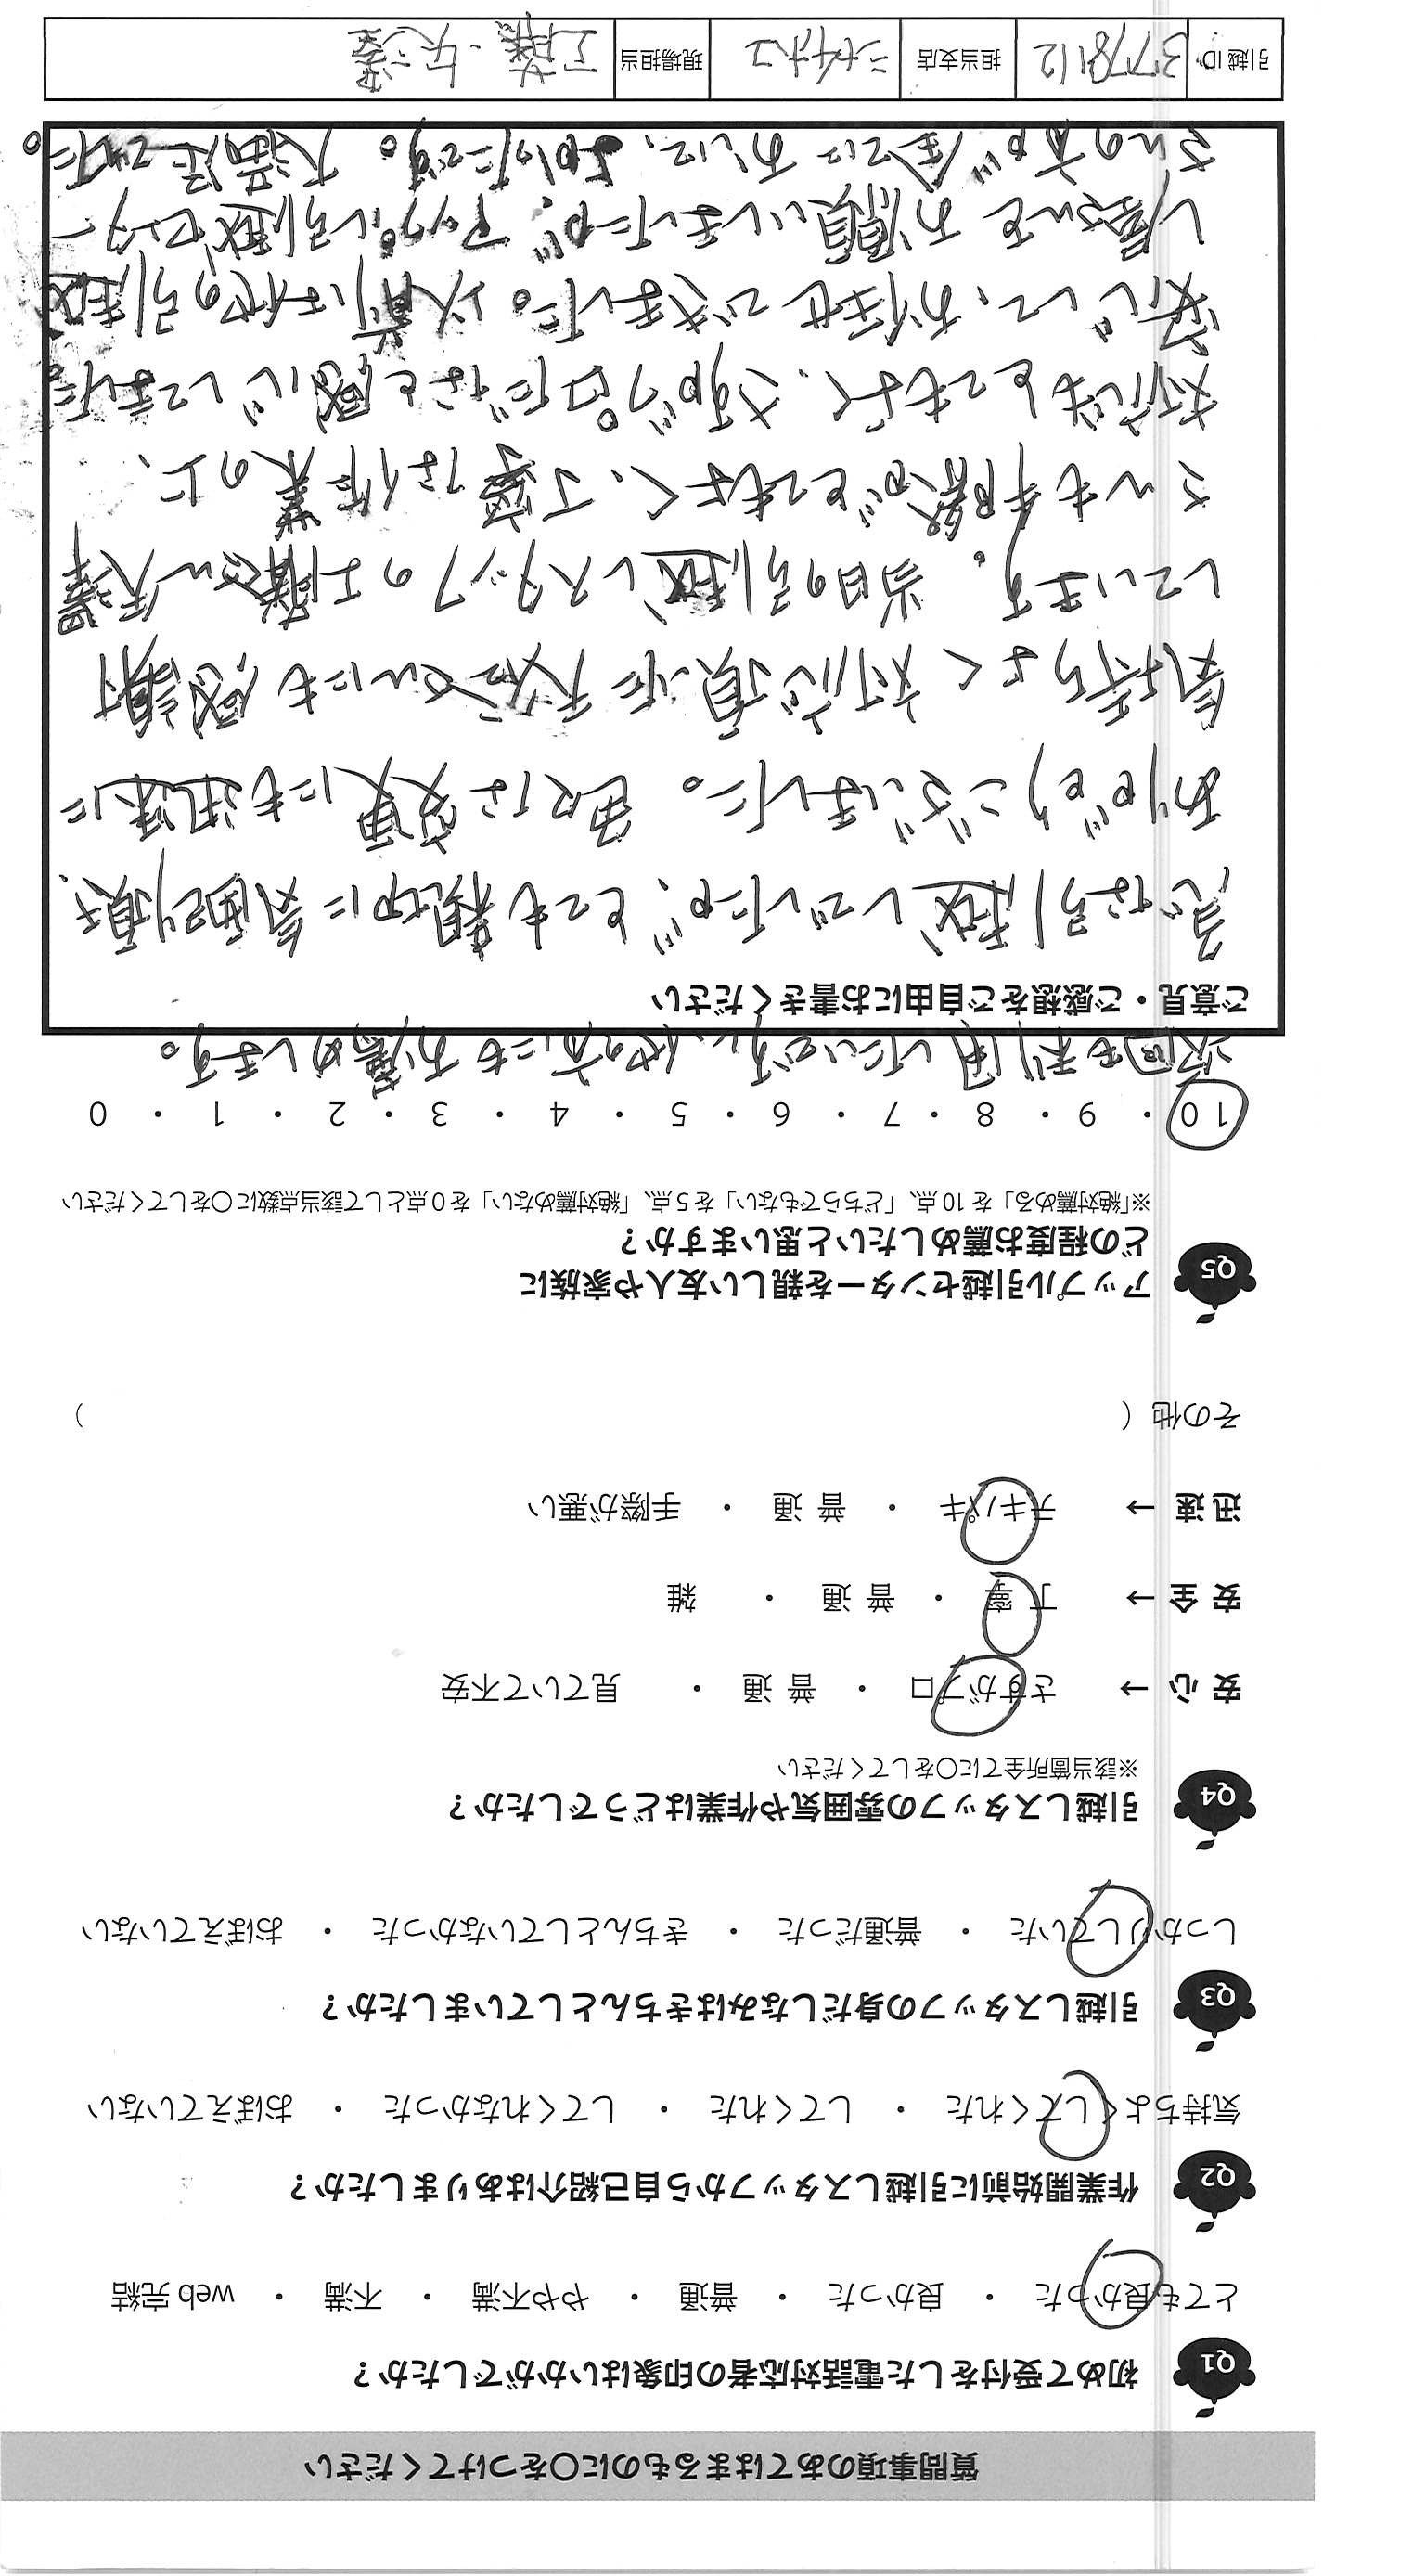 質問事項のあてはまるものに○をつけてください
Q1 初めて受付をした電話対応者の印象はいかがでしたか?
とても良かった ・ 良かった ・ 普通 ・ やや不満 ・ 不満 ・ web 完結
Q2 作業開始前に引越しスタッフから自己紹介はありましたか?
気持ちよくしてくれた ・ してくれた ・ してくれなかった ・ おぼえていない
Q3 引越しスタッフの身だしなみはきちんとしていましたか?
しっかりしていた ・ 普通だった ・ きちんとしていなかった ・ おぼえていない
Q4 引越しスタッフの雰囲気や作業はどうでしたか?
※該当箇所全てに○をしてください
安心→ さすがプロ ・ 普通 ・ 見ていて不安
安全→ 丁寧 ・ 普通 ・ 雑
迅速→ テキパキ ・ 普通 ・ 手際が悪い
その他( )
Q5 アップル引越センターを親しい友人や家族に
どの程度お薦めしたいと思いますか?
※「絶対薦める」を10点、「どちらでもない」を5点、「絶対薦めない」を0点として該当点数に○をしてください
10 ・ 9 ・ 8 ・ 7 ・ 6 ・ 5 ・ 4 ・ 3 ・ 2 ・ 1 ・ 0
次回も利用したいですし、他の方にもお薦めします。
ご意見・ご感想をご自由にお書きください
急な引越しでしたが、とても親切に気配り頂き、
ありがとうございました。色々な変更にも迅速に
気持ちよく対応頂いた さんにも感謝
しています。当日の引越しスタッフの工藤さん矢澤
さんも手際がとてもよく、丁寧な作業の上、
対応もとてもよく、さすがプロだなと感じてました。
安心して、お任せできました。以前は他の引越
し屋さんをお願いしましたが、アップル引越センター
さんの方が全てにおいて、よかったです。大満足でした。
引越ID 3778112 担当支店 シャイナユ 現場担当 工藤・矢澤